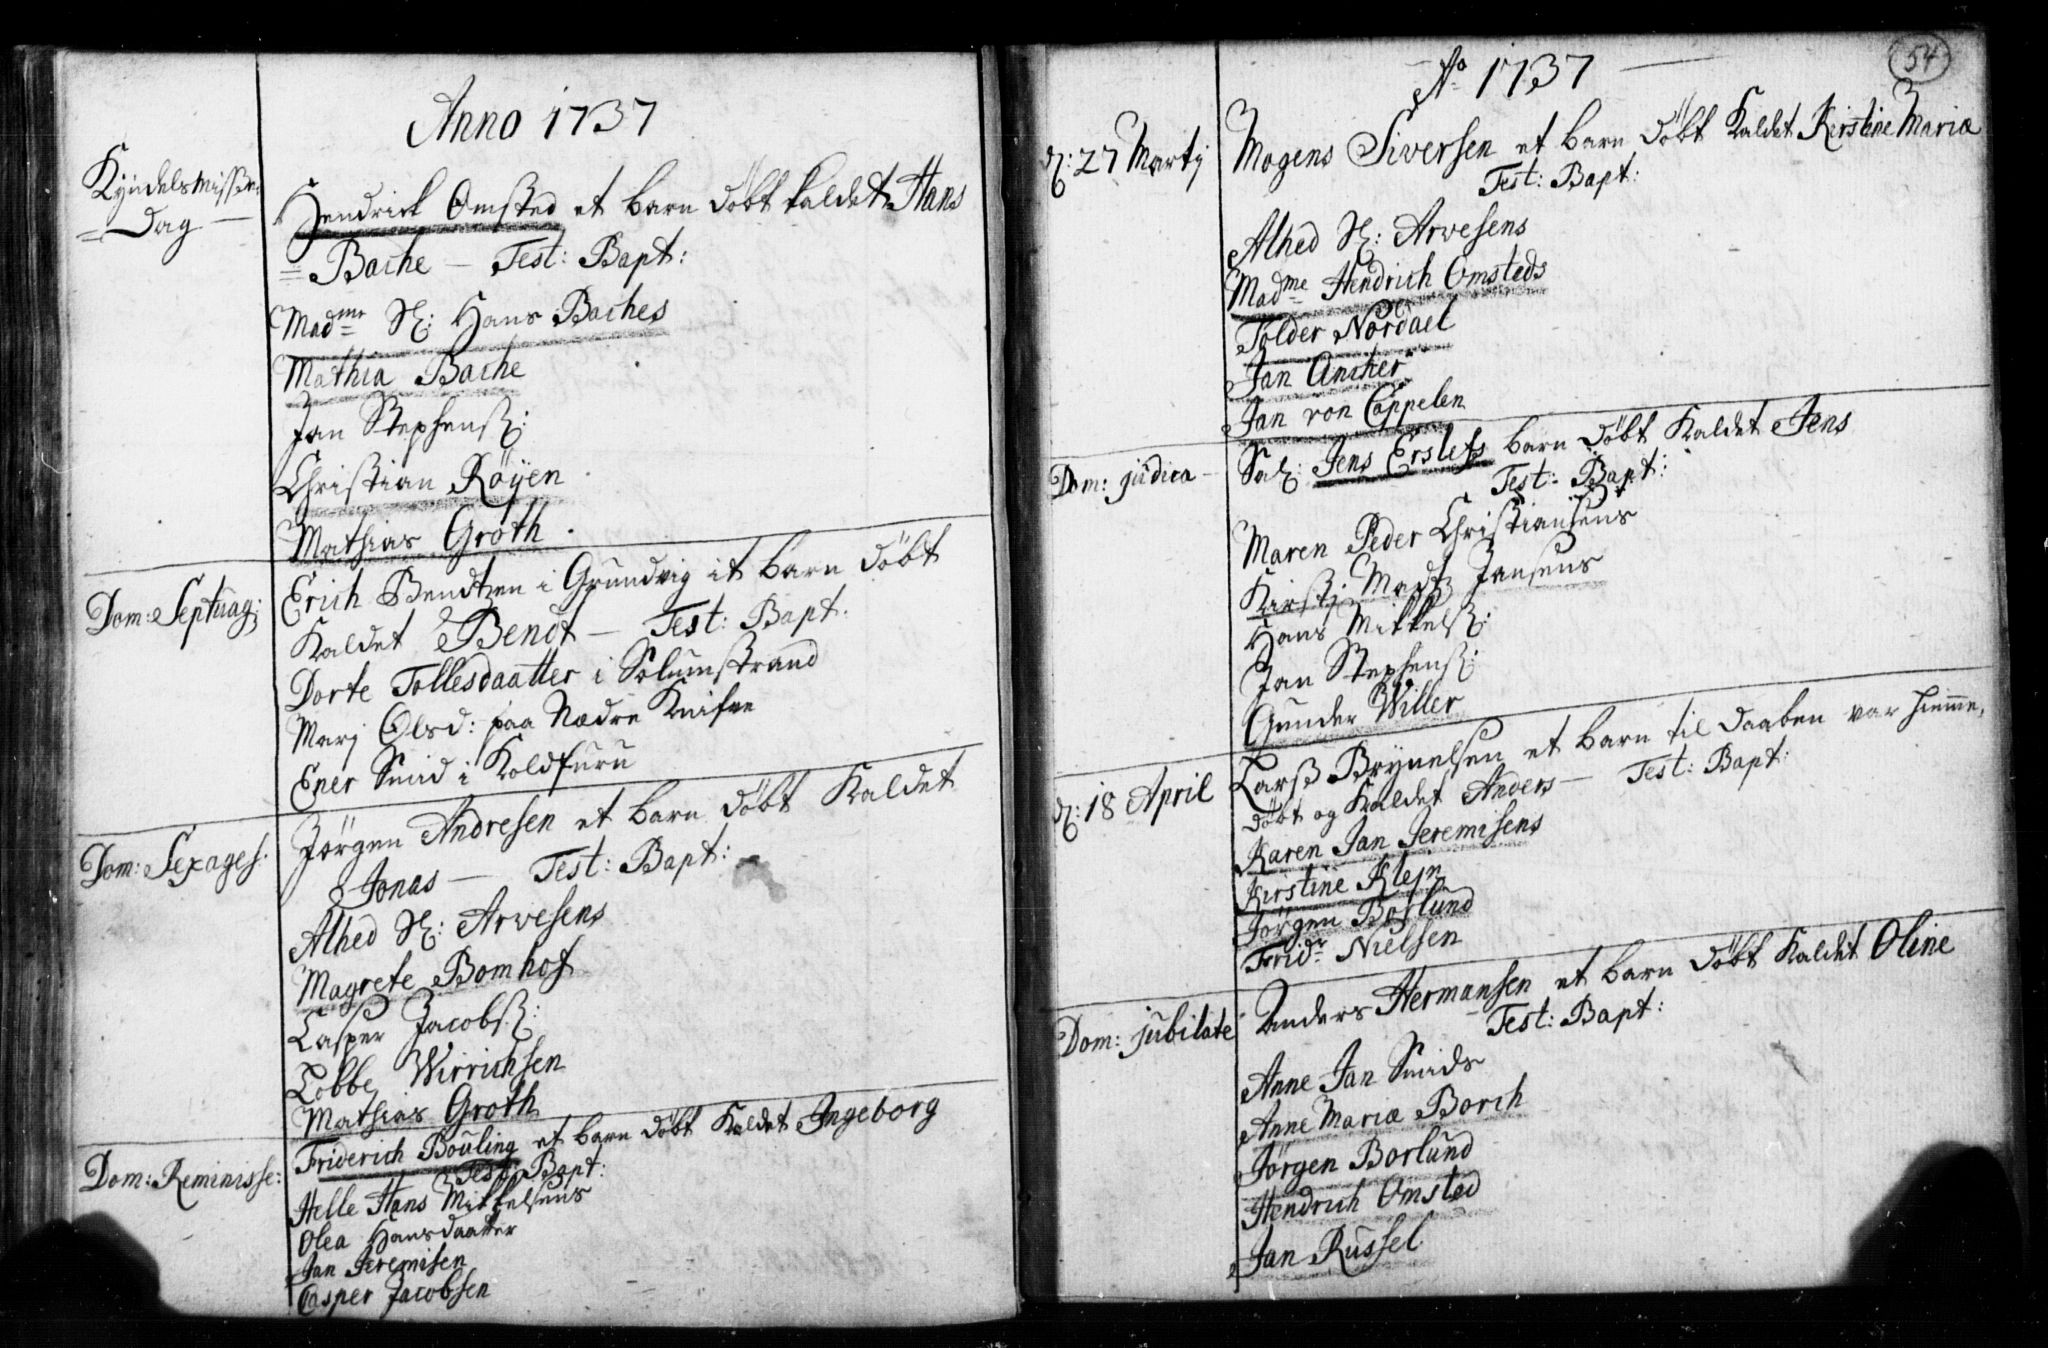 Anno 1737
Kyndelsmisse
= Dag —
Hendrick Omsted et barn døbt kaldet Hans
= Bache — Test: Bapt:
Madme Sl: Hans Baches
Mathia Bache
Jan Stephenß:
Christian Röÿen
Mathias Groth
Dom: Septuag:
Erich Bendtzen i Grundvig it barn døbt
Kaldet Bendt — Test: Bapt:
Dorte Tollesdaatter i Solumstrand
Marj Olsd: paa Nedre Knifve
Ener Smid i Koldfuru
Dom: Sexages:
Jörgen Andresen et barn döbt Kaldet
Jonas — Test: Bapt:
Alhed Sl: Arvesens
Magrete Bomhof
Casper Jacobß:
Lobbe Wirrichsen
Mathias Groth
Dom: Reminisse:
Friderich Bouling et barn döbt Kaldet Ingeborg
Test: Bapt:
Helle Hans Mikkelsens
Olea Hansdaatter
Jan Jeremisen
Casper Jacobsen
54
Ao 1737
d: 27 Martj
Mogens Siversen et barn döbt Kaldet Kirstine Maria
Test: Bapt:
Alhed Sl: Arvesens
Madme Hendrich Omsteds
Tolder Nordael
Jan Ancher
Jan von Cappelen
Dom: judica —
Sal: Jens Erslefs barn döbt Kaldet Jens
Test: Bapt:
Maren Peder Christiansens
Kirstj Madtz Jansens
Hans Mikkelß:
Jan Stephenß:
Gunder Willer
d: 18 April
Larß Brynelsen et barn til daaben var hiemme,
döbt og Kaldet Anders — Test: Bapt:
Karen Jan Jeremisens
Kirstine Klejn
Jörgen Borlund
Fridr Nielsen
Dom: jubilate
Anders Hermansen et barn döbt Kaldet Oline
Test: Bapt:
Anne Jan Smids
Anne Maria Borch
Jörgen Borlund
Hendrich Omsted
Jan Russel